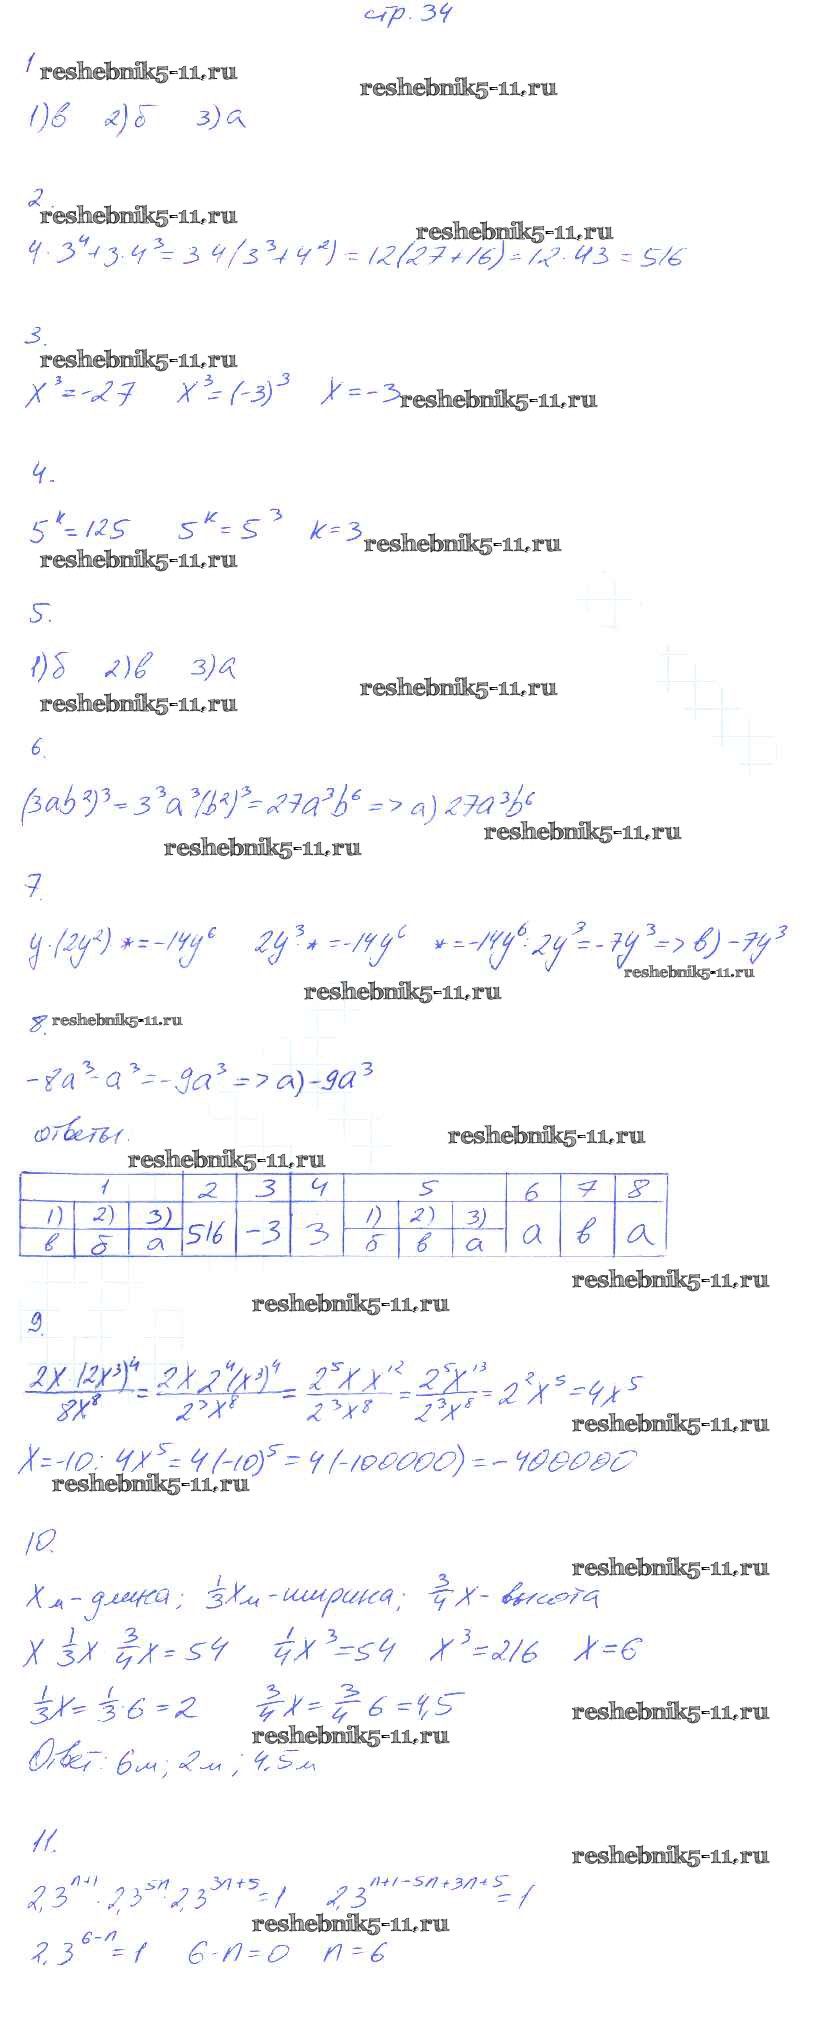 стр. 34
1
reshebnik5-11.ru
reshebnik5-11.ru
1) в 2) б 3) а
2.
reshebnik5-11.ru
reshebnik5-11.ru
4·3⁴+3·4³=3 4(3³+4²)=12(27+16)=12·43=516
3.
reshebnik5-11.ru
x³=-27 x³=(-3)³ x=-3
reshebnik5-11.ru
4.
5ᵏ=125 5ᵏ=5³ k=3
reshebnik5-11.ru
reshebnik5-11.ru
5.
1) б 2) в 3) а
reshebnik5-11.ru
reshebnik5-11.ru
6.
(3ab²)³=3³a³(b²)³=27a³b⁶=> а) 27a³b⁶
reshebnik5-11.ru
reshebnik5-11.ru
7.
y·(2y²) *=-14y⁶ 2y³·*=-14y⁶ *=-14y⁶:2y³=-7y³=> в) -7y³
reshebnik5-11.ru
reshebnik5-11.ru
8.
reshebnik5-11.ru
-8a³-a³=-9a³=> а) -9a³
ответы:
reshebnik5-11.ru
reshebnik5-11.ru
1 2 3 4 5 6 7 8
1) 2) 3) 516 -3 3 1) 2) 3) а в а
в б а б в а
reshebnik5-11.ru
reshebnik5-11.ru
9.
2x·(2x³)⁴/8x⁸ = 2x 2⁴(x³)⁴/2³x⁸ = 2⁵x x¹²/2³x⁸ = 2⁵x¹³/2³x⁸ = 2²x⁵=4x⁵
reshebnik5-11.ru
x=-10: 4x⁵=4(-10)⁵=4(-100000)=-400000
reshebnik5-11.ru
10.
reshebnik5-11.ru
x м-длина; 1/3 x м-ширина; 3/4 x-высота
x 1/3 x 3/4 x=54 1/4 x³=54 x³=216 x=6
1/3 x=1/3·6=2 3/4 x=3/4 6=4,5
reshebnik5-11.ru
reshebnik5-11.ru
Ответ: 6м; 2м; 4,5м
11.
reshebnik5-11.ru
2,3ⁿ⁺¹:2,3⁵ⁿ·2,3³ⁿ⁺⁵=1 2,3ⁿ⁺¹⁻⁵ⁿ⁺³ⁿ⁺⁵=1
reshebnik5-11.ru
2,3⁶⁻ⁿ=1 6-n=0 n=6